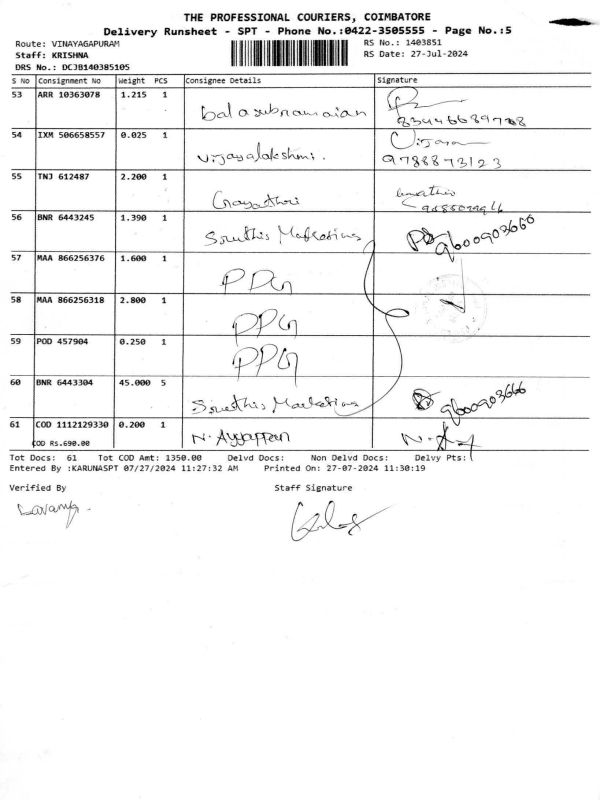 THE PROFESSIONAL COURIERS, COIMBATORE
Delivery Runsheet - SPT - Phone No.:0422-3505555 - Page No.:5
Route: VINAYAGAPURAM RS No.: 1403851
Staff: KRISHNA RS Date: 27-Jul-2024
DRS No.: DCJB140385105
S No Consignment No Weight PCS Consignee Details Signature
53 ARR 10363078 1.215 1
balasubramaian
54 IXM 506658557 0.025 1
vijayalakshmi. 9788873123
55 TNJ 612487 2.200 1
Gayathri
56 BNR 6443245 1.390 1
9600903666
57 MAA 866256376 1.600 1
58 MAA 866256318 2.800 1
PPG
59 POD 457904 0.250 1
PPG
60 BNR 6443304 45.000 5
9600903666
61 COD 1112129330 0.200 1
N. Ayyappan
COD Rs.690.00
Tot Docs: 61 Tot COD Amt: 1350.00 Delvd Docs: Non Delvd Docs: Delvy Pts:
Entered By :KARUNASPT 07/27/2024 11:27:32 AM Printed On: 27-07-2024 11:30:19
Verified By Staff Signature
Lavanya